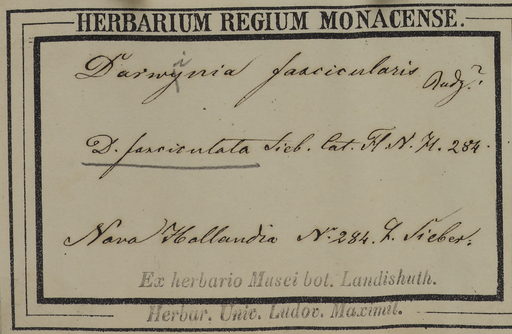 HERBARIUM REGIUM MONACENSE.
Darwynia fascicularis Rudg.
D. fasciculata Sieb. Cat. Fl N. H. 284.
Nova Hollandia No. 284. F. Sieber.
Ex herbario Musei bot. Landishuth.
Herbar. Univ. Ludov. Maximil.